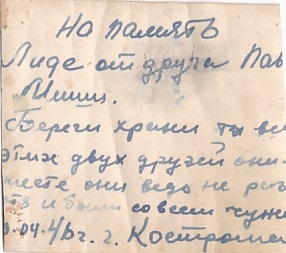 На память
Лиде от друга Пав
Миши.
Береги храни ты
этих двух друзей они
месте они ведь не
и были совсем чужи
04.46г. г. Кострома